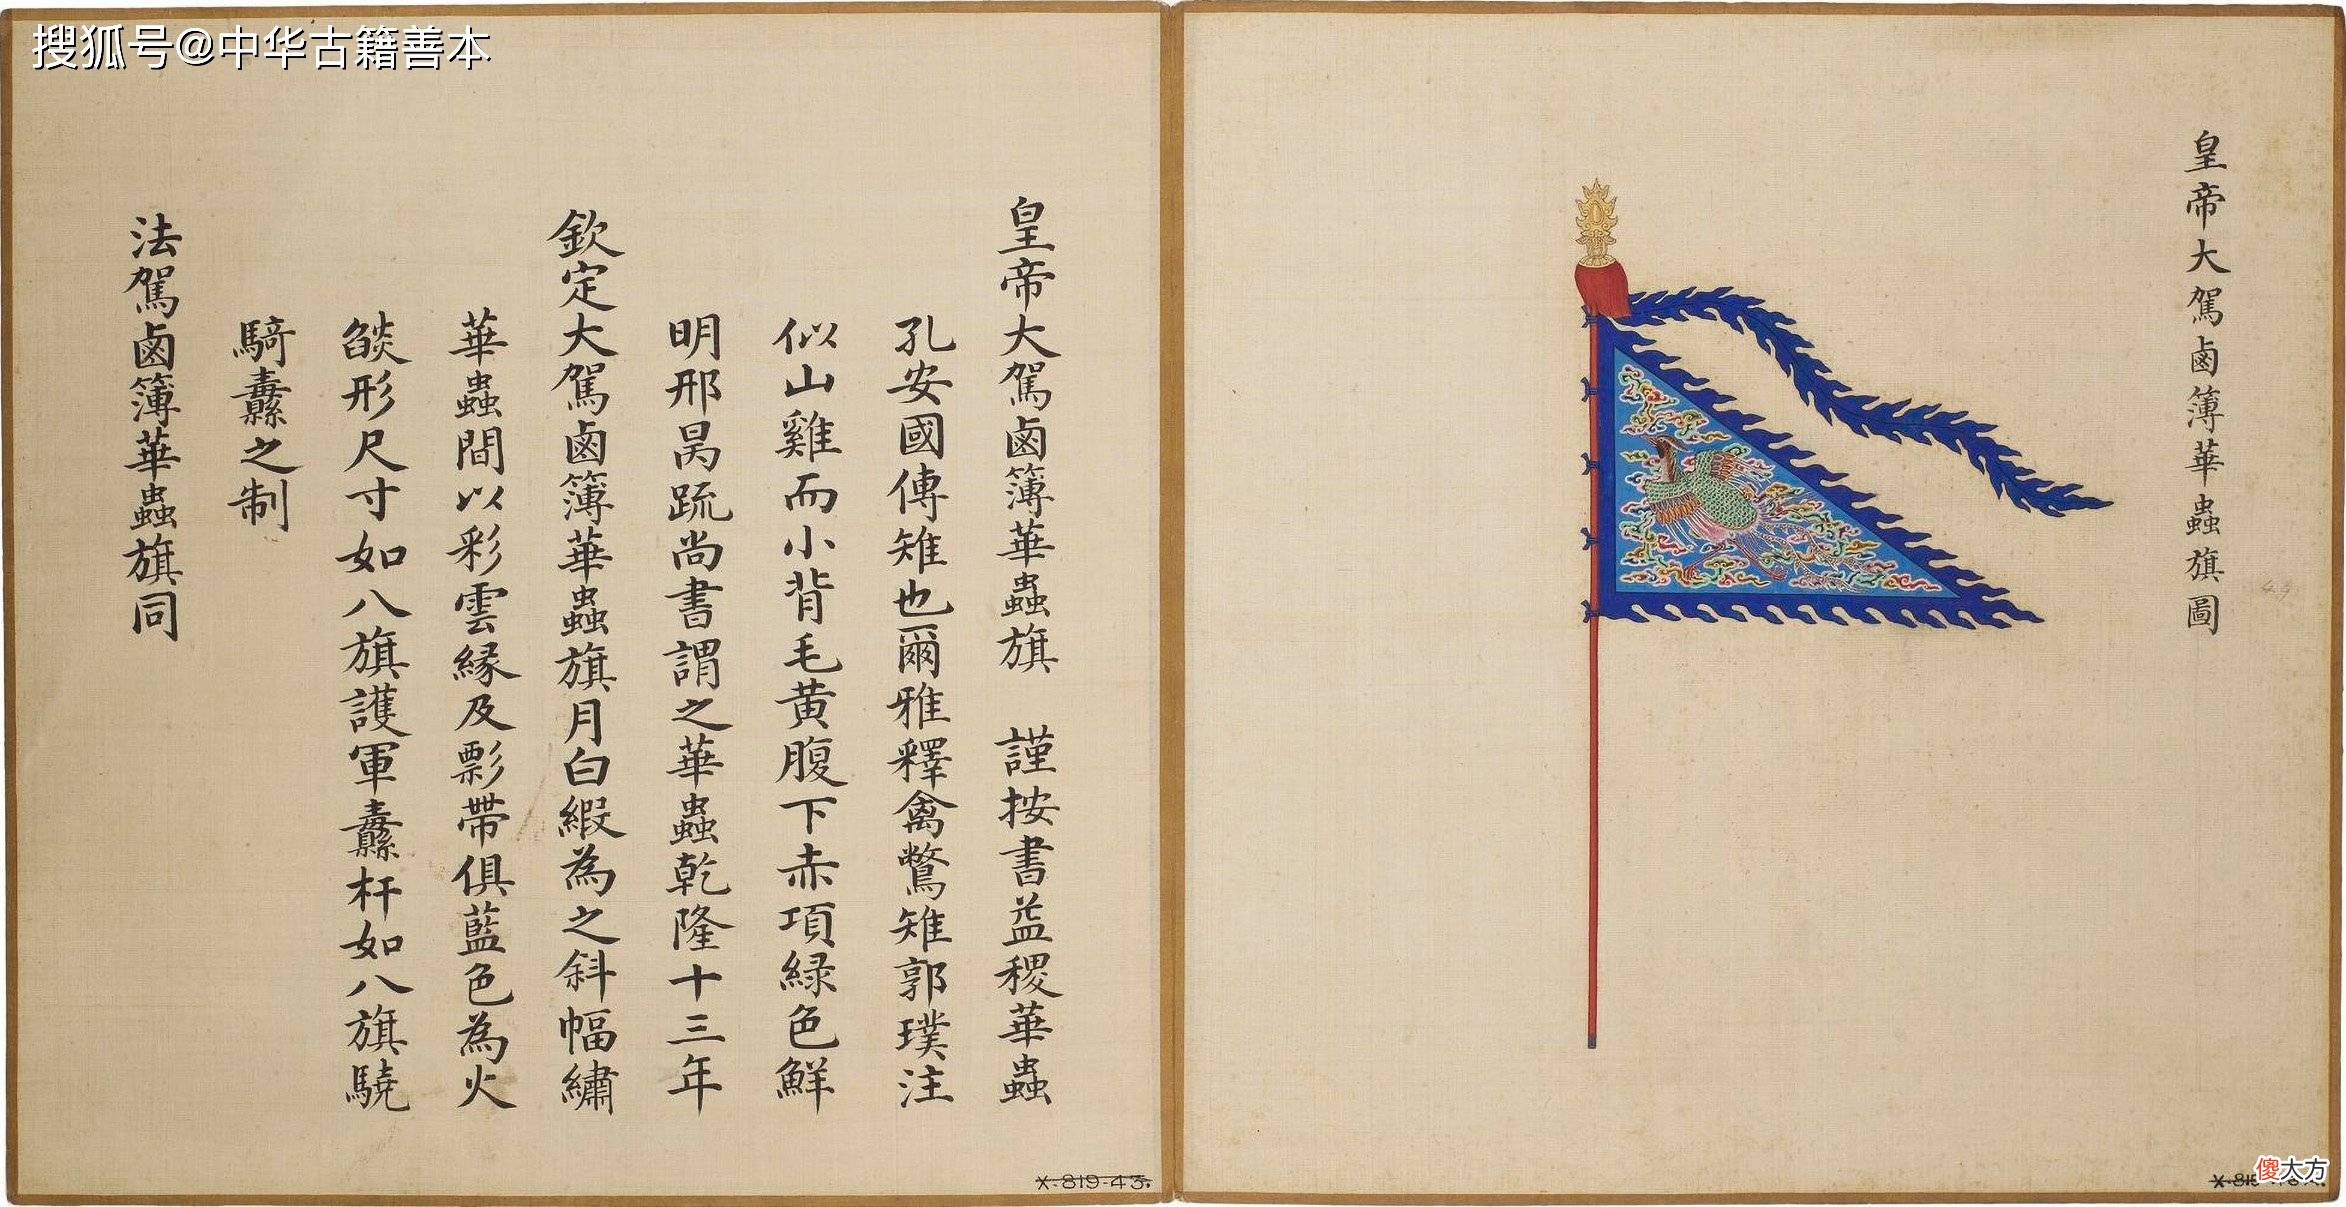 搜狐号@中华古籍善本
皇帝大駕鹵簿華蟲旗圖
皇帝大駕鹵簿華蟲旗　謹按書益稷華蟲
孔安國傳雉也爾雅釋禽鷩雉郭璞注
似山雞而小背毛黄腹下赤項緑色鮮
明邢昺疏尚書謂之華蟲乾隆十三年
欽定大駕鹵簿華蟲旗月白緞為之斜幅繡
華蟲間以彩雲緣及彯帶俱藍色為火
燄形尺寸如八旗護軍纛杆如八旗驍
騎纛之制
法駕鹵簿華蟲旗同
X-819-43.
傻大方